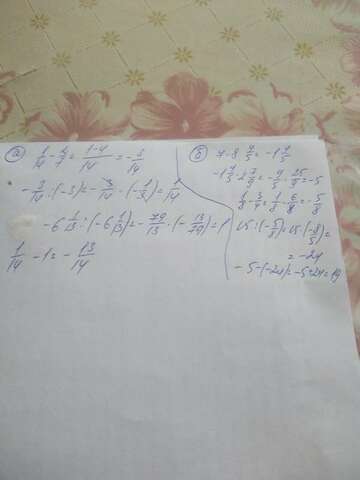 а) 1/14 - 2/7 = 1-4/14 = -3/14
-3/14 : (-3) = -3/14 · (-1/3) = 1/14
-6 1/13 : (-6 1/13) = -79/13 · (-13/79) = 1
1/14 - 1 = -13/14
б) 7 - 8 4/5 = -1 4/5
-1 4/5 · 2 7/9 = -9/5 · 25/9 = -5
1/8 - 3/4 = 1/8 - 6/8 = -5/8
15 : (-5/8) = 15 · (-8/5) =
= -24
-5 - (-24) = -5 + 24 = 19